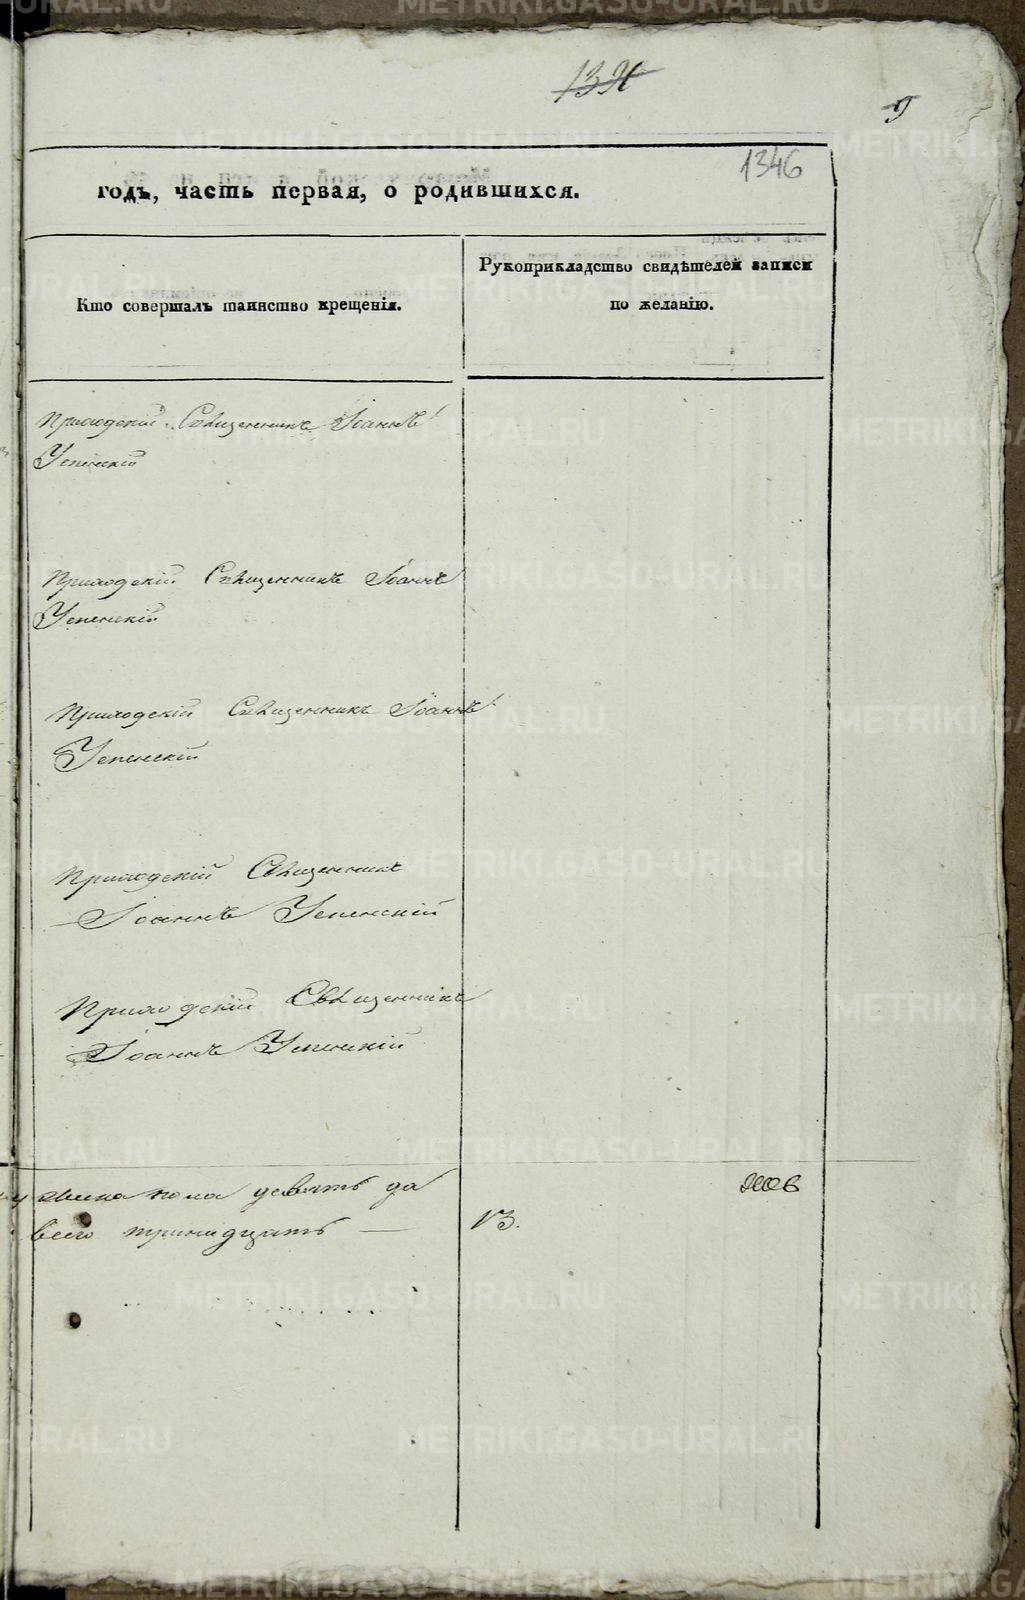 1346
годъ, часть первая, о родившихся.
Кто совершалъ таинство крещенія.
Рукоприкладство свидѣтелей записи
по желанію.
Приходскій Священникъ Іоаннъ
Успенскій
Приходскій Священникъ Іоаннъ
Успенскій
Приходскій Священникъ Іоаннъ
Успенскій
Приходскій Священникъ
Іоаннъ Успенскій
Приходскій Священникъ
Іоаннъ Успенскій
пола девять да
всего тринадцать — 13.
METRIKI.GASO-URAL.RU